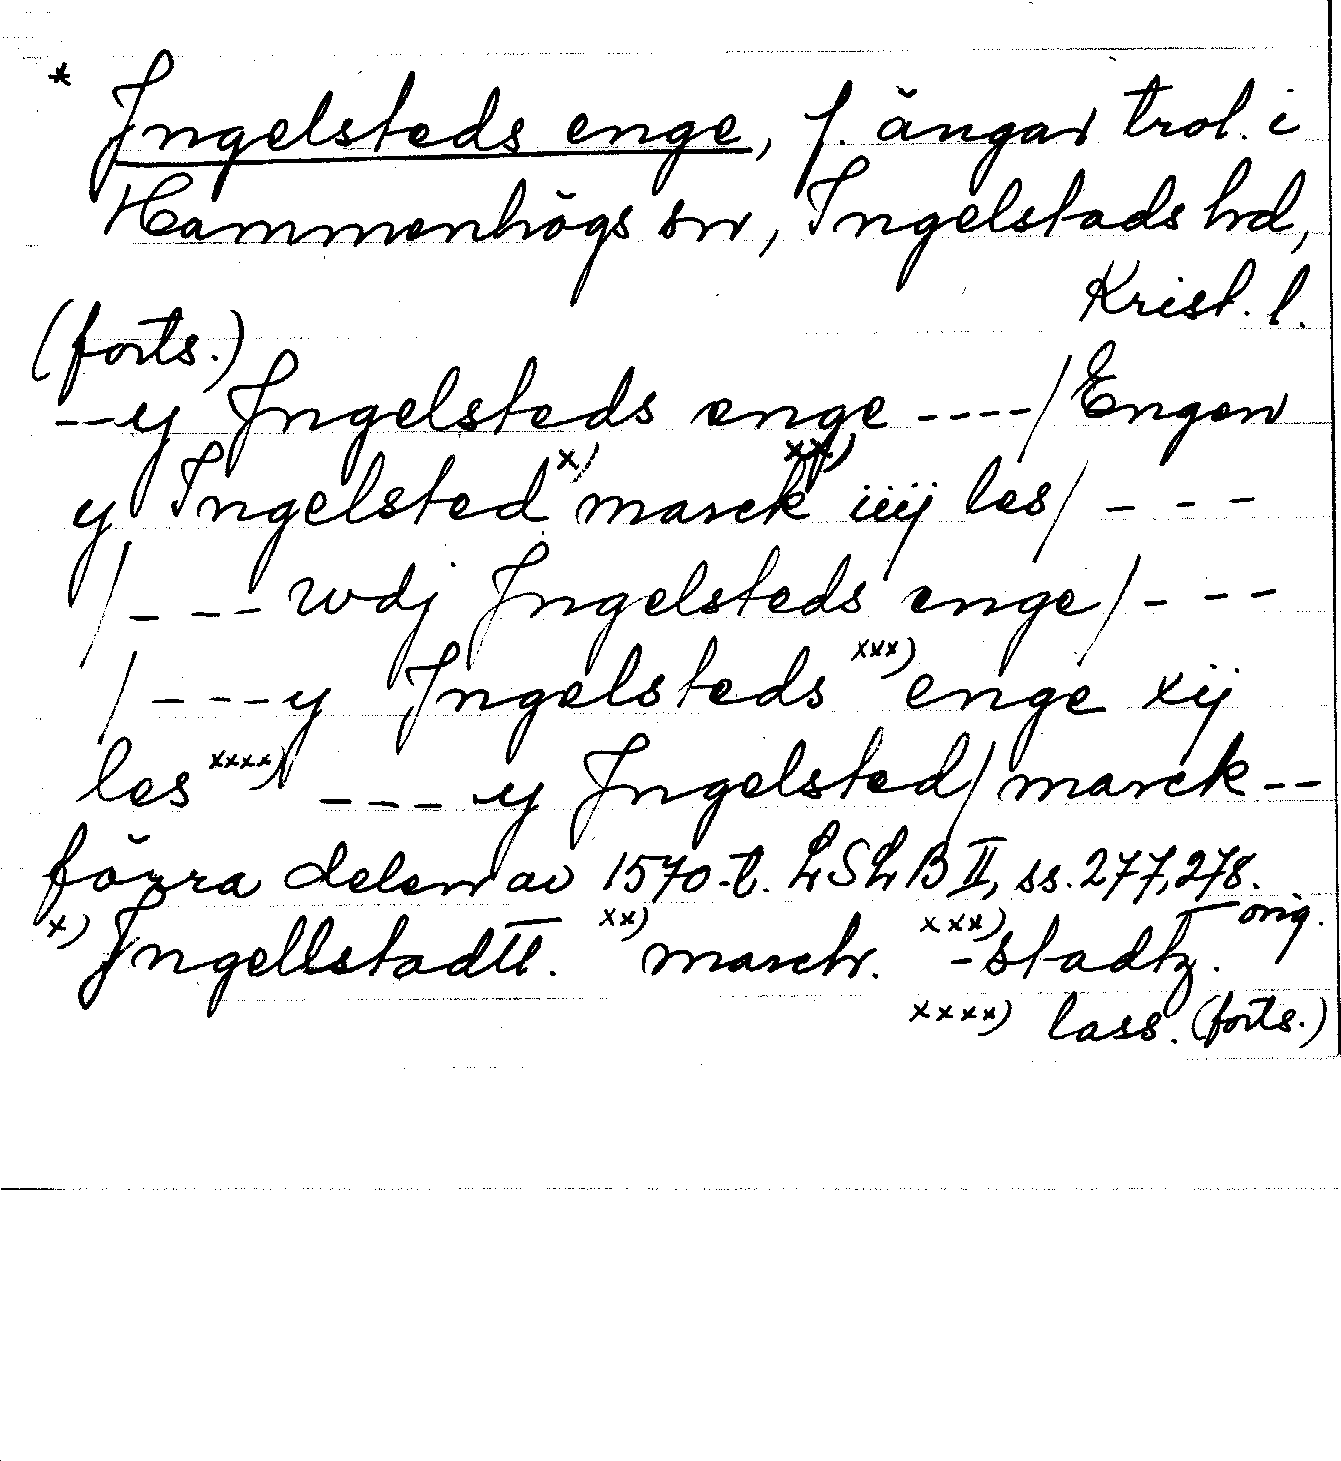 * Ingelsteds enge, f. ängar trol. i
Hammenhögs sn, Ingelstads hd,
Krist. l.
(forts.)
--y Ingelsteds enge ----/Engen
y Ingelsted x) marck xx) iiij les/ - - -
/- - - wdj Ingelsteds enge/- - -
/- - - y Ingelsteds xxx) enge xij
les xxxx) - - - y Ingelsted/marck--
förra delen av 1570-t. LSLB II, ss. 277, 278.
x) Ingellstadtt. xx) march. xxx) -stadtz. orig.
xxxx) lass. (forts.)